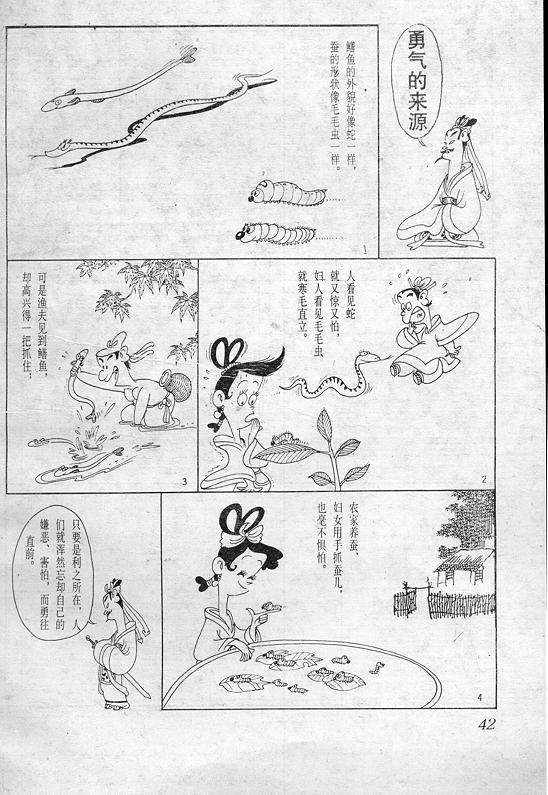 勇气的来源
鳝鱼的外貌好像蛇一样，
蚕的形状像毛毛虫一样。
1
人看见蛇
就又惊又怕，
妇人看见毛毛虫
就寒毛直立。
2
可是渔夫见到鳝鱼，
却高兴得一把抓住；
3
农家养蚕、
妇女用手抓蚕儿，
也毫不惧怕。
4
只要是利之所在，人
们就浑然忘却自己的
嫌恶、害怕，而勇往
直前。
42